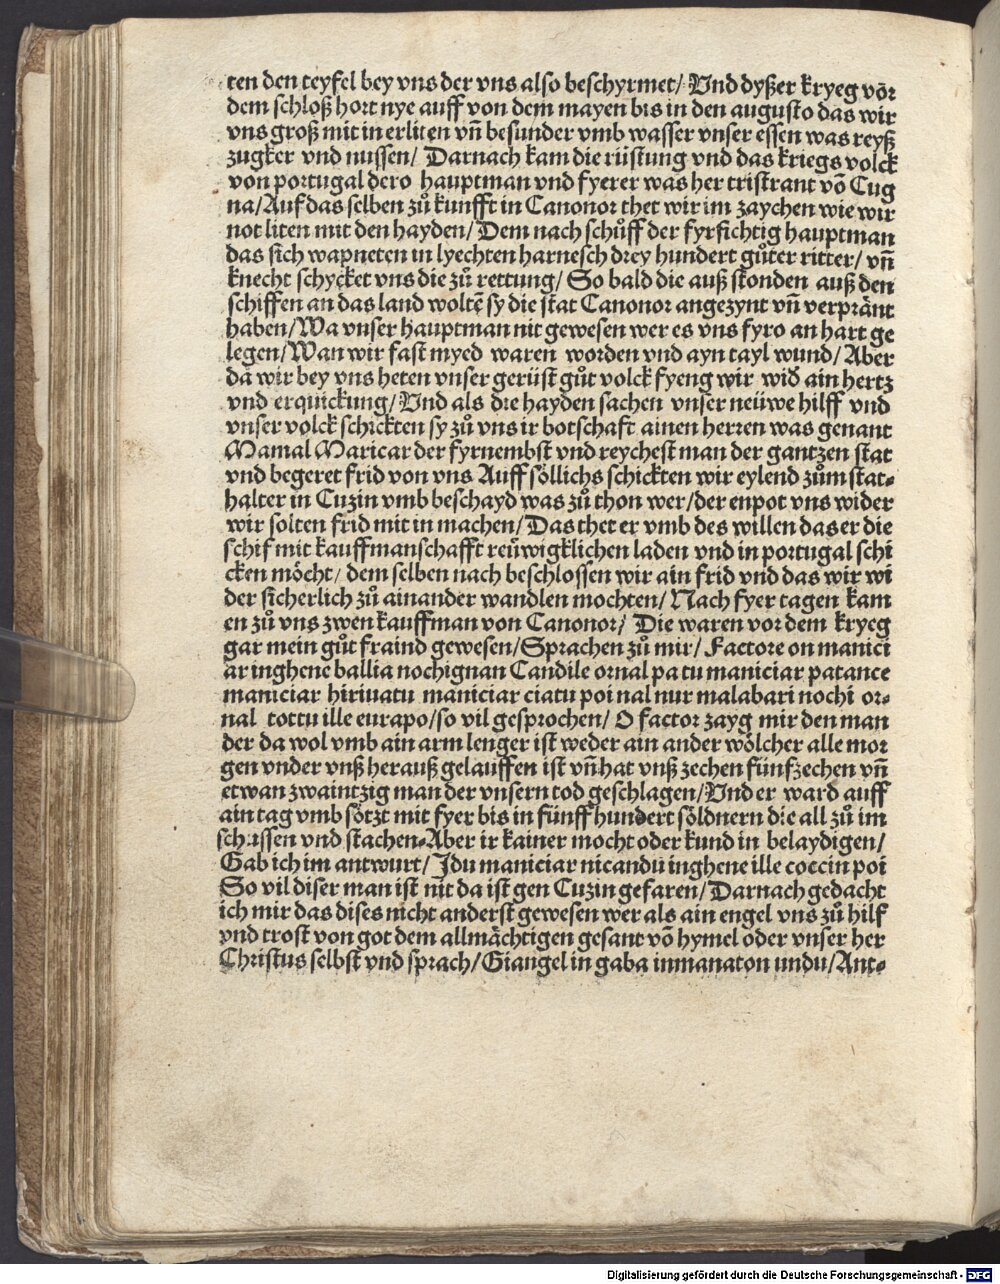 ten den teyfel bey vns der vns also beschyrmet/ Vnd dyßer kryeg vor
dem schloß hort nye auff von dem mayen bis in den augusto das wir
vns groß mit in erliten vñ besunder vmb wasser vnser essen was reyß
zugker vnd nussen/ Darnach kam die rüstung vnd das kriegs volck
von portugal dero hauptman vnd fyerer was her tristrant võ Cug
na/Auf das selben zů kunfft in Canonor thet wir im zaychen wie wir
not liten mit den hayden/ Dem nach schůff der fyrsichtig hauptman
das sich wapneten in lyechten harnesch drey hundert gůter ritter/ vñ
knecht schycket vns die zů rettung/ So bald die auß stonden auß den
schiffen an das land woltẽ sy die stat Canonor angezynt vñ verpränt
haben/Wa vnser hauptman nit gewesen wer es vns fyro an hart ge
legen/Wan wir fast myed waren worden vnd ayn tayl wund/ Aber
da wir bey vns heten vnser gerüst gůt volck fyeng wir wið ain hertz
vnd erquickung/ Vnd als die hayden sachen vnser neüwe hilff vnd
vnser volck schickten sy zů vns ir botschaft ainen herren was genant
Mamal Maricar der fyrnembst vnd reychest man der gantzen stat
vnd begeret frid von vns Auff söllichs schickten wir eylend zům stat⸗
halter in Cuzin vmb beschayd was zů thon wer/der enpot vns wider
wir solten frid mit in machen/ Das thet er vmb des willen das er die
schif mit kauffmanschafft reüwigklichen laden vnd in portugal schi
cken möcht/ dem selben nach beschlossen wir ain frid vnd das wir wi
der sicherlich zů ainander wandlen mochten/ Nach fyer tagen kam
en zů vns zwen kauffman von Canonor/ Die waren vor dem kryeg
gar mein gůt fraind gewesen/Sprachen zů mir/ Factore on manici
ar inghene ballia nochignan Candile ornal pa tu maniciar patance
maniciar hiriuatu maniciar ciatu poi nal nur malabari nochi or⸗
nal tottu ille eurapo/so vil gesprochen/ O factor zayg mir den man
der da wol vmb ain arm lenger ist weder ain ander wölcher alle mor
gen vnder vnß herauß gelauffen ist vñ hat vnß zechen fünfzechen vñ
etwan zwaintzig man der vnsern tod geschlagen/Vnd er ward auff
ain tag vmb sötzt mit fyer bis in fünff hundert söldnern die all zů im
schussen vnd stachen⸗Aber ir kainer mocht oder kund in belaydigen/
Gab ich im antwurt/ Idu maniciar nicandu inghene ille coccin poi
So vil diser man ist nit da ist gen Cuzin gefaren/ Darnach gedacht
ich mir das dises nicht anderst gewesen wer als ain engel vns zů hilf
vnd trost von got dem allmächtigen gesant võ hymel oder vnser her
Christus selbst vnd sprach/ Giangel in gaba inmanaton undu/Ant⸗
Digitalisierung gefördert durch die Deutsche Forschungsgemeinschaft - DFG